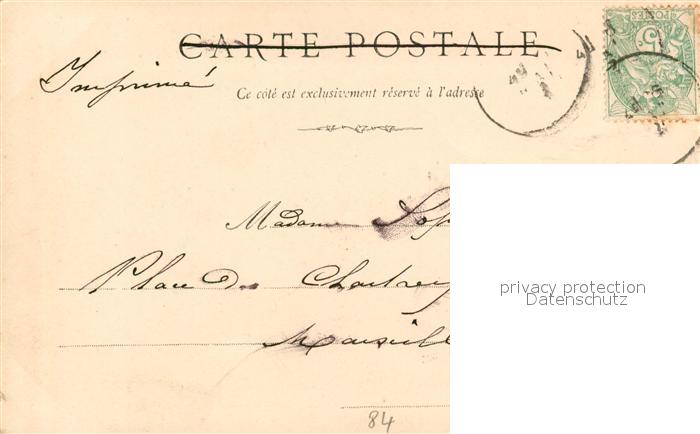 CARTE POSTALE
Imprimé
Ce côté est exclusivement réservé à l'adresse
Madame
Place des Chartreu
Marseill
privacy protection
Datenschutz
84